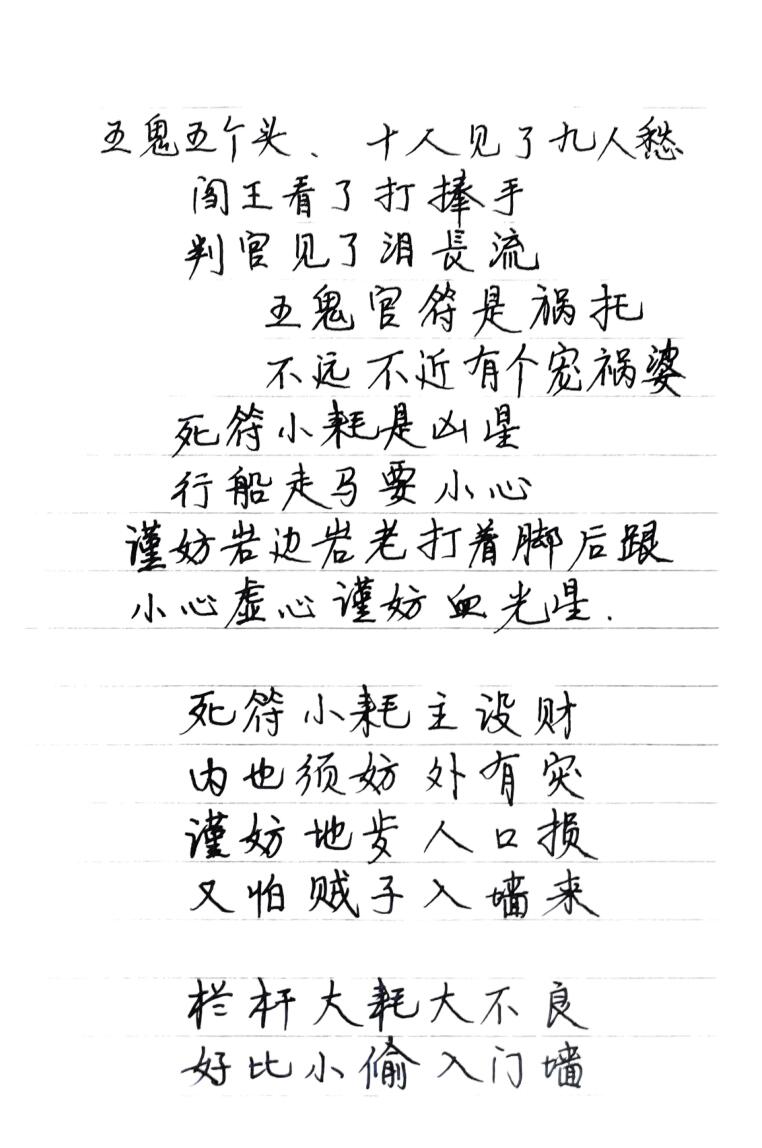 五鬼五个头、十人见了九人愁
阎王看了打捧手
判官见了泪長流
五鬼官符是祸托
不远不近有个宠祸婆
死符小耗是凶星
行船走马要小心
谨妨岩边岩老打着脚后跟
小心虚心谨妨血光星.
死符小耗主设财
内也须妨外有灾
谨妨地步人口损
又怕贼子入墙来
栏杆大耗大不良
好比小偷入门墙